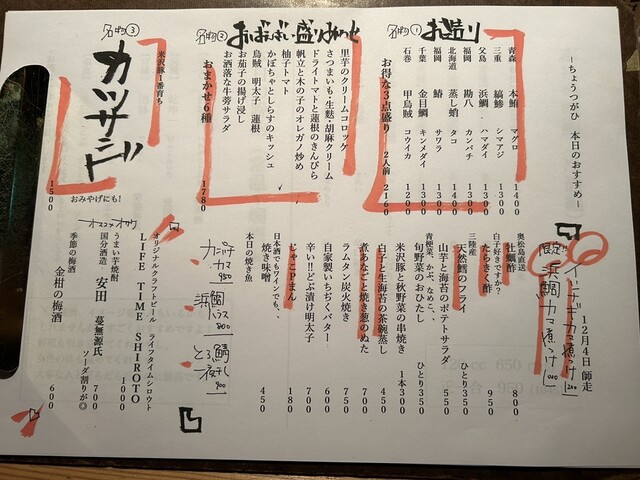 ーちょうつがひ 本日のおすすめー
12月4日 師走
名物① お造り
青森 本鮪 マグロ 1400
三重 縞鯵 シマアジ 1300
父島 浜鯛 ハマダイ 1300
福岡 勘八 カンパチ 1300
北海道 蒸し蛸 タコ 1400
福岡 鰆 サワラ 1300
千葉 金目鯛 キンメダイ 1300
石巻 甲烏賊 コウイカ 1200
お得な3点盛り 2人前 2160
名物② おばんざい盛り合わせ
里芋のクリームコロッケ
さつまいも・生麩・胡麻クリーム
ドライトマトと蓮根のきんぴら
帆立と木の子のオレガノ炒め
柚子トマト
かぼちゃとしらすのキッシュ
烏賊 明太子 蓮根
お茄子の揚げ浸し
お洒落な牛蒡サラダ
おまかせ6種 1780
名物③
米沢豚1番育ち
カツサンド
おみやげにも!
1500
限定 浜鯛カマ煮つけ
奥松島直送
牡蠣酢 800
白子好きですか?
たらきく酢 950
三陸産
天然鱈のフライ ひとり350
山芋と海苔のポテトサラダ 550
青梗菜、かぶ、なめこ、、
旬野菜のおひたし ひとり350
米沢豚と秋野菜の串焼き 1本300
白子と生海苔の茶碗蒸し 450
煮あなごと焼き葱のぬた 700
ラムタン炭火焼き 750
自家製いちぢくバター 600
辛い!!どぶ漬け明太子 700
じゃこPまん 180
日本酒でもワインでも、、
焼き味噌 450
本日の焼き魚
カンパチカマ
浜鯛ハラス 800
とろ鯖一夜干し 900
オススメ
オリジナルクラフトビール ライフタイムシロウト
LIFE TIME SHIROTO 1000
うまい芋焼酎
国分酒造 安田 蔓無源氏 700
ソーダ割りが◎
季節の梅酒
金柑の梅酒 600